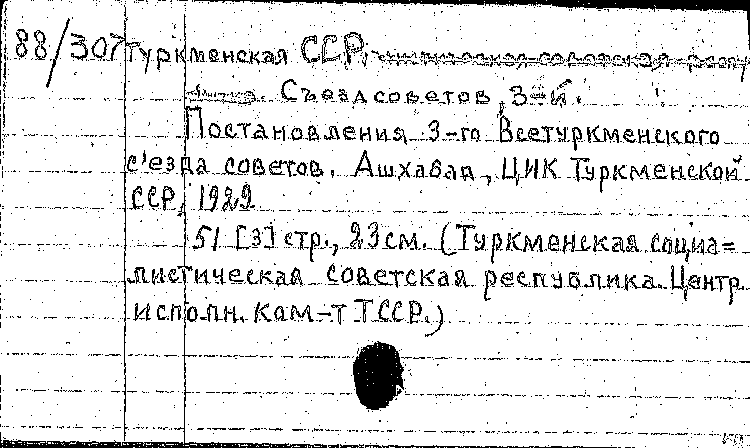 88/307 Туркменская ССР.
Съезд советов, 3-й.
Постановления 3-го Всетуркменского
с'езда советов. Ашхабад, ЦИК Туркменской
ССР, 1929
51 [3] стр., 23 см. (Туркменская социа=
листическая советская республика. Центр.
исполн. ком-т ТССР.)